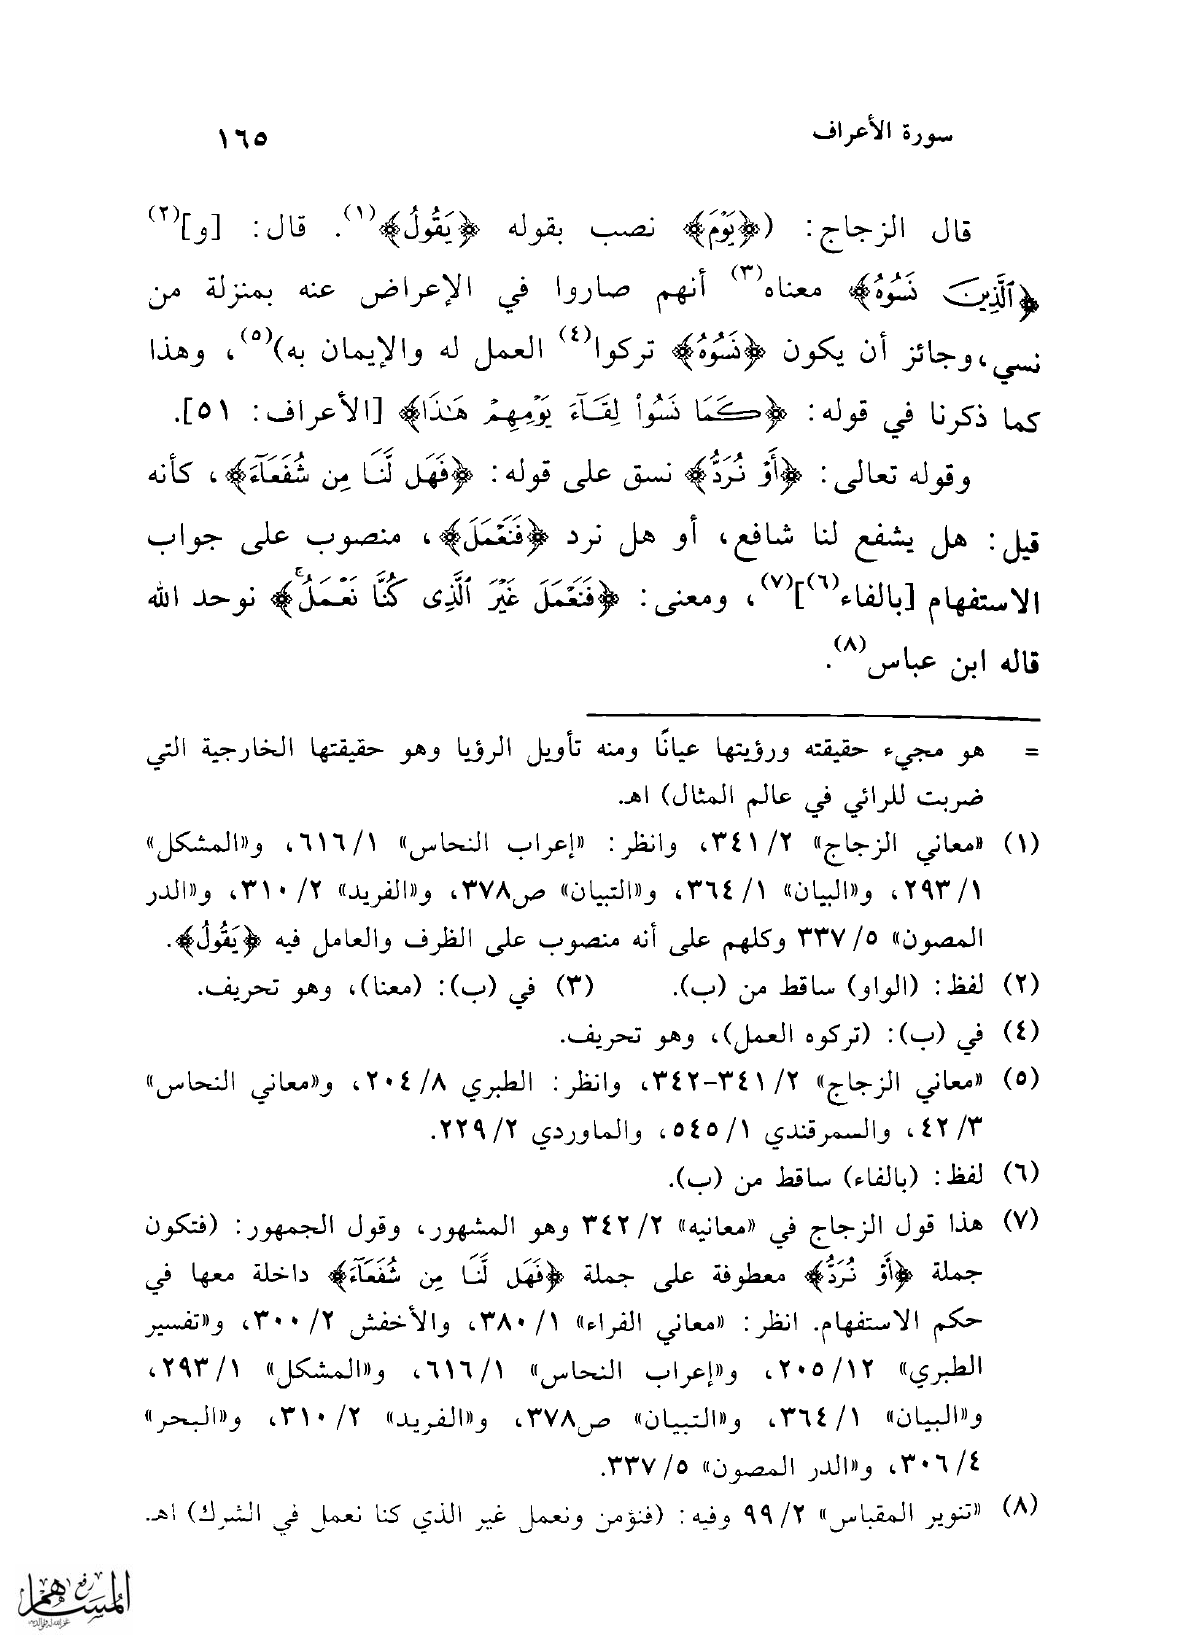 سورة الأعراف ١٦٥
قال الزجاج: (﴿يَوْمَ﴾ نصب بقوله ﴿يَقُولُ﴾(١). قال: [و](٢)
﴿ٱلَّذِينَ نَسُوهُ﴾ معناه(٣) أنهم صاروا في الإعراض عنه بمنزلة من
نسي، وجائز أن يكون ﴿نَسُوهُ﴾ تركوا(٤) العمل له والإيمان به)(٥)، وهذا
كما ذكرنا في قوله: ﴿كَمَا نَسُوا۟ لِقَآءَ يَوْمِهِمْ هَـٰذَا﴾ [الأعراف: ٥١].
وقوله تعالى: ﴿أَوْ نُرَدُّ﴾ نسق على قوله: ﴿فَهَل لَّنَا مِن شُفَعَآءَ﴾، كأنه
قيل: هل يشفع لنا شافع، أو هل نرد ﴿فَنَعْمَلَ﴾، منصوب على جواب
الاستفهام [بالفاء(٦)](٧)، ومعنى: ﴿فَنَعْمَلَ غَيْرَ ٱلَّذِى كُنَّا نَعْمَلُ ۚ﴾ نوحد الله
قاله ابن عباس(٨).
= هو مجيء حقيقته ورؤيتها عيانًا ومنه تأويل الرؤيا وهو حقيقتها الخارجية التي
ضربت للرائي في عالم المثال) اهـ.
(١) «معاني الزجاج» ٢/ ٣٤١، وانظر: «إعراب النحاس» ١/ ٦١٦، و«المشكل»
١/ ٢٩٣، و«البيان» ١/ ٣٦٤، و«التبيان» ص٣٧٨، و«الفريد» ٢/ ٣١٠، و«الدر
المصون» ٥/ ٣٣٧ وكلهم على أنه منصوب على الظرف والعامل فيه ﴿يَقُولُ﴾.
(٢) لفظ: (الواو) ساقط من (ب). (٣) في (ب): (معنا)، وهو تحريف.
(٤) في (ب): (تركوه العمل)، وهو تحريف.
(٥) «معاني الزجاج» ٢/ ٣٤١-٣٤٢، وانظر: الطبري ٨/ ٢٠٤، و«معاني النحاس»
٣/ ٤٢، والسمرقندي ١/ ٥٤٥، والماوردي ٢/ ٢٢٩.
(٦) لفظ: (بالفاء) ساقط من (ب).
(٧) هذا قول الزجاج في «معانيه» ٢/ ٣٤٢ وهو المشهور، وقول الجمهور: (فتكون
جملة ﴿أَوْ نُرَدُّ﴾ معطوفة على جملة ﴿فَهَل لَّنَا مِن شُفَعَآءَ﴾ داخلة معها في
حكم الاستفهام. انظر: «معاني الفراء» ١/ ٣٨٠، والأخفش ٢/ ٣٠٠، و«تفسير
الطبري» ١٢/ ٢٠٥، و«إعراب النحاس» ١/ ٦١٦، و«المشكل» ١/ ٢٩٣،
و«البيان» ١/ ٣٦٤، و«التبيان» ص٣٧٨، و«الفريد» ٢/ ٣١٠، و«البحر»
٤/ ٣٠٦، و«الدر المصون» ٥/ ٣٣٧.
(٨) «تنوير المقباس» ٢/ ٩٩ وفيه: (فنؤمن ونعمل غير الذي كنا نعمل في الشرك) اهـ.